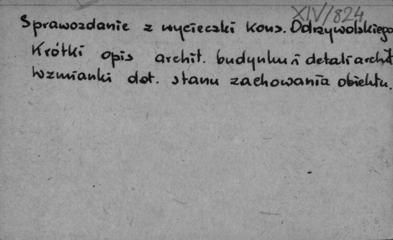 XIV/824
Sprawozdanie z wycieczki kons. Odrzywolskiego
Krótki opis archit. budynku i detali archit
Wzmianki dot. stanu zachowania obiektu.